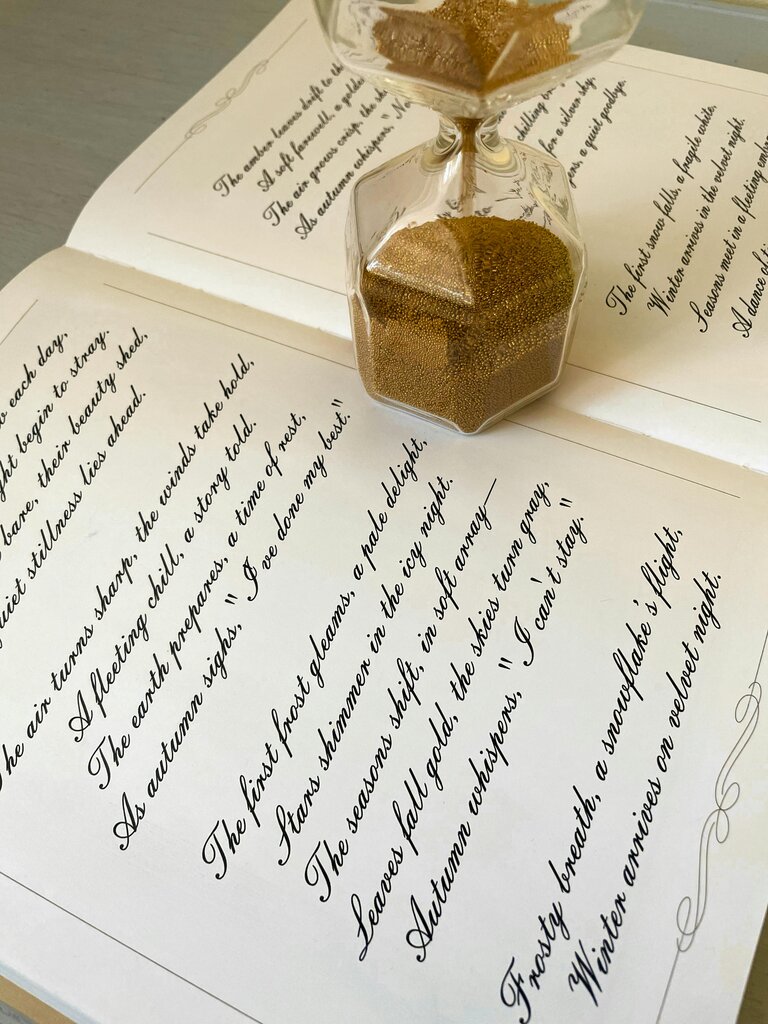 The amber leaves drift to
A soft farewell, a
The air grows crisp, the
As autumn whispers,
chilling
for a silver sky,
a quiet goodbye.
The first snow falls, a fragile white,
Winter arrives in the velvet night.
Seasons meet in a fleeting
A dance of
each day,
begin to stray.
bare, their beauty shed,
quiet stillness lies ahead.
The air turns sharp, the winds take hold,
A fleeting chill, a story told.
The earth prepares, a time of rest,
As autumn sighs, "I've done my best."
The first frost gleams, a pale delight,
Stars shimmer in the icy night.
The seasons shift, in soft array—
Leaves fall gold, the skies turn gray,
Autumn whispers, "I can't stay."
Frosty breath, a snowflake's flight,
Winter arrives on velvet night.